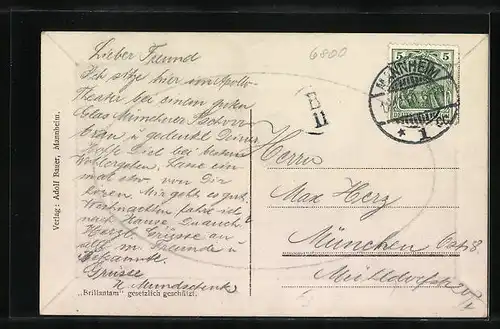 Lieber Freund
Ich sitze hier im Apollo-
Theater bei einem guten
Glas Münchener Pschorr-
bräu u. gedenke Deiner
Hoffe Dich bei bestem
Wohlergehen. Lasse ein
mal etw. von Dir
hören. Mir geht es gut.
Weihnachten fahre ich
nach Hause. Du auch
Herzl. Grüsse an
alle m. Freunde u
Bekannte.
Grüsse
N. Mundschenk
„Brillantam“ gesetzlich geschützt.
Verlag: Adolf Bauer, Mannheim.
6800
B
11
5 5
MANNHEIM
* 1
Herrn
Max Herz
München